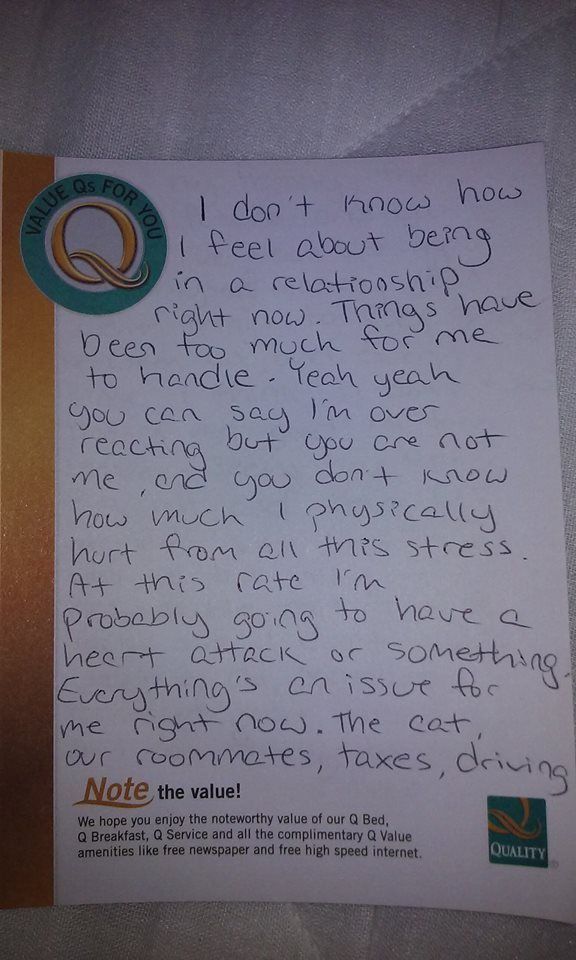 VALUE Qs FOR YOU
Q
I don't know how
I feel about being
in a relationship
right now. Things have
been too much for me
to handle. Yeah yeah
you can say I'm over
reacting but you are not
me, and you don't know
how much I physically
hurt from all this stress.
At this rate I'm
probably going to have a
heart attack or something.
Everything's an issue for
me right now. The cat,
our roommates, taxes, driving
Note the value!
We hope you enjoy the noteworthy value of our Q Bed,
Q Breakfast, Q Service and all the complimentary Q Value
amenities like free newspaper and free high speed internet.
QUALITY